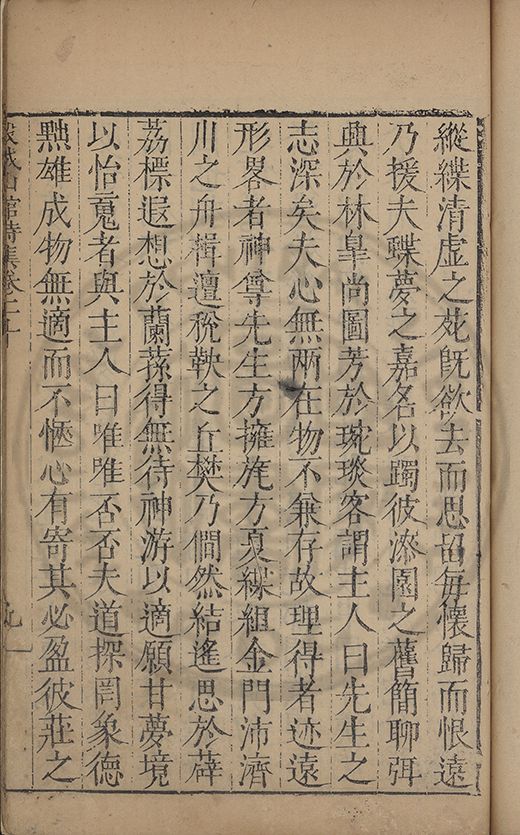 縱緤清虛之苑旣欲去而思畱每懷歸而恨遠
乃援夫蝶夢之嘉名以躅彼漆園之舊簡聊弭
興於林臯尚圖芳於琬琰客謂主人曰先生之
志深矣夫心無兩在物不兼存故理得者迹遠
形畧者神尊先生方擁旄方夏緤組金門沛濟
川之舟楫邅稅鞅之丘樊乃僩然結遙思於薜
荔標遐想於蘭蓀得無待神游以適願甘夢境
以怡䰟者與主人曰唯唯否否夫道探罔象德
黜雄成物無適而不愜心有寄其必盈彼莊之
城山館詩集卷二十
九